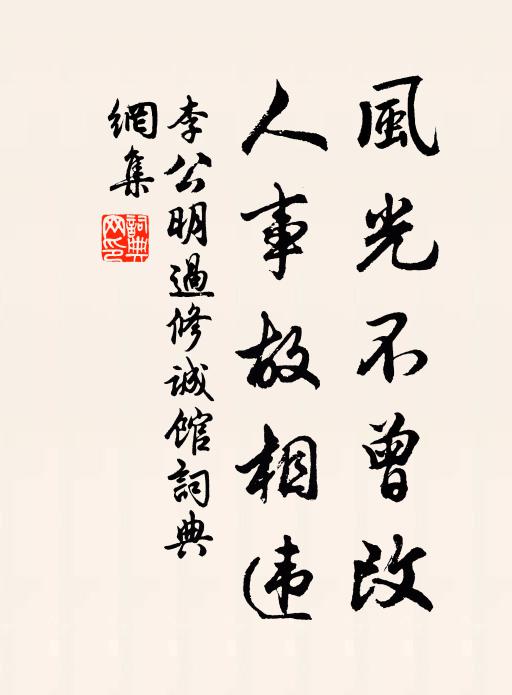 風光不曾改
人事故相违
李公明過修誠館詞典
網集
詞典
网印